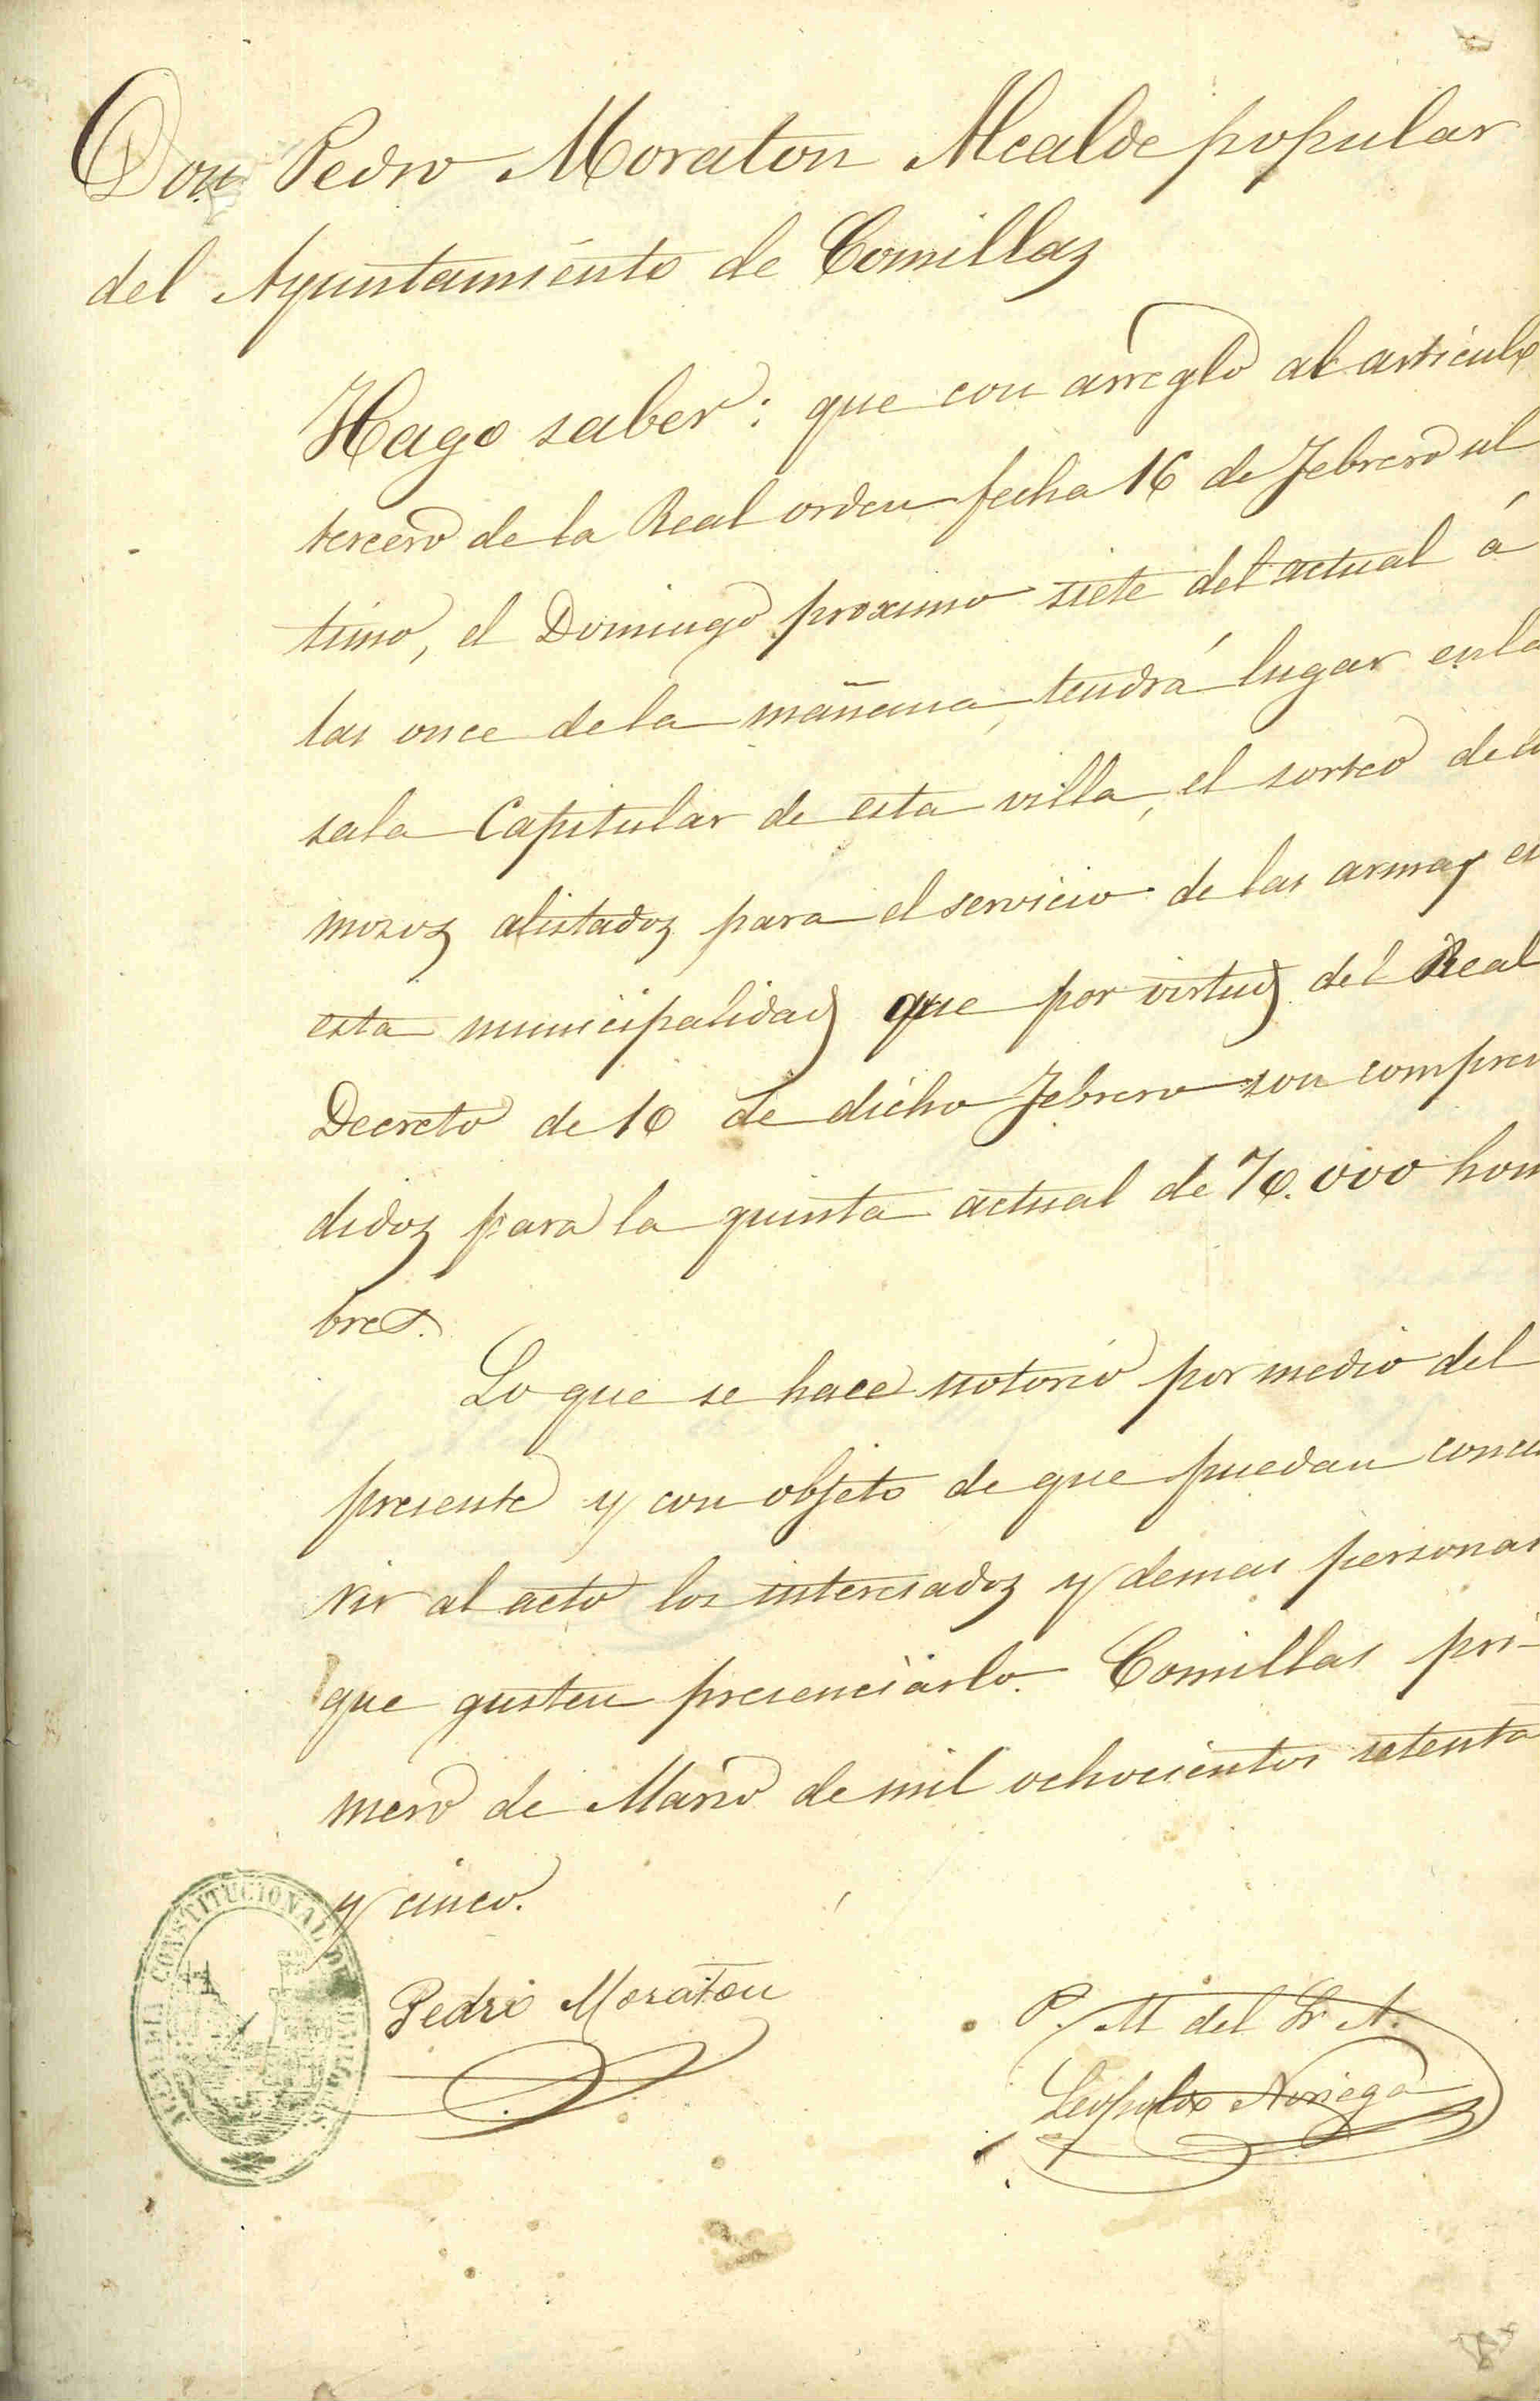 Don Pedro Moraton Alcalde popular
del Ayuntamiento de Comillas
Hago saber: que con arreglo al articulo
tercero de la Real orden fecha 16 de Febrero ul
timo, el Domingo proximo siete del actual á
las once de la mañana, tendrá lugar en la
sala Capitular de esta villa, el sorteo de lo
mozos alistados para el servicio de las armas en
esta municipalidad que por virtud del Real
Decreto de 10 de dicho Febrero son compren
didos para la quinta actual de 70.000 hom
bres.
Lo que se hace notorio por medio del
presente y con objeto de que puedan concu
rrir al acto los interesados y demas personas
que gusten presenciarlo. Comillas pri-
mero de Marzo de mil ochocientos setenta
y cinco.
Pedro Moraton
P. M del Sr A.
Leopoldo Noriega
ALCALDIA CONSTITUCIONAL DE COMILLAS